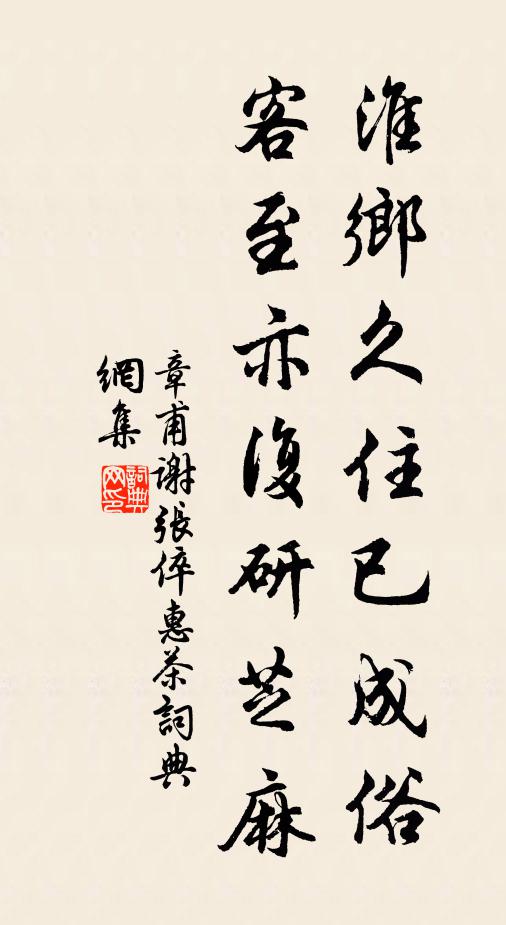 淮鄉久住已成俗
客至亦復研芝麻
章甫謝張倅惠茶詞典
網集
詞典
网印